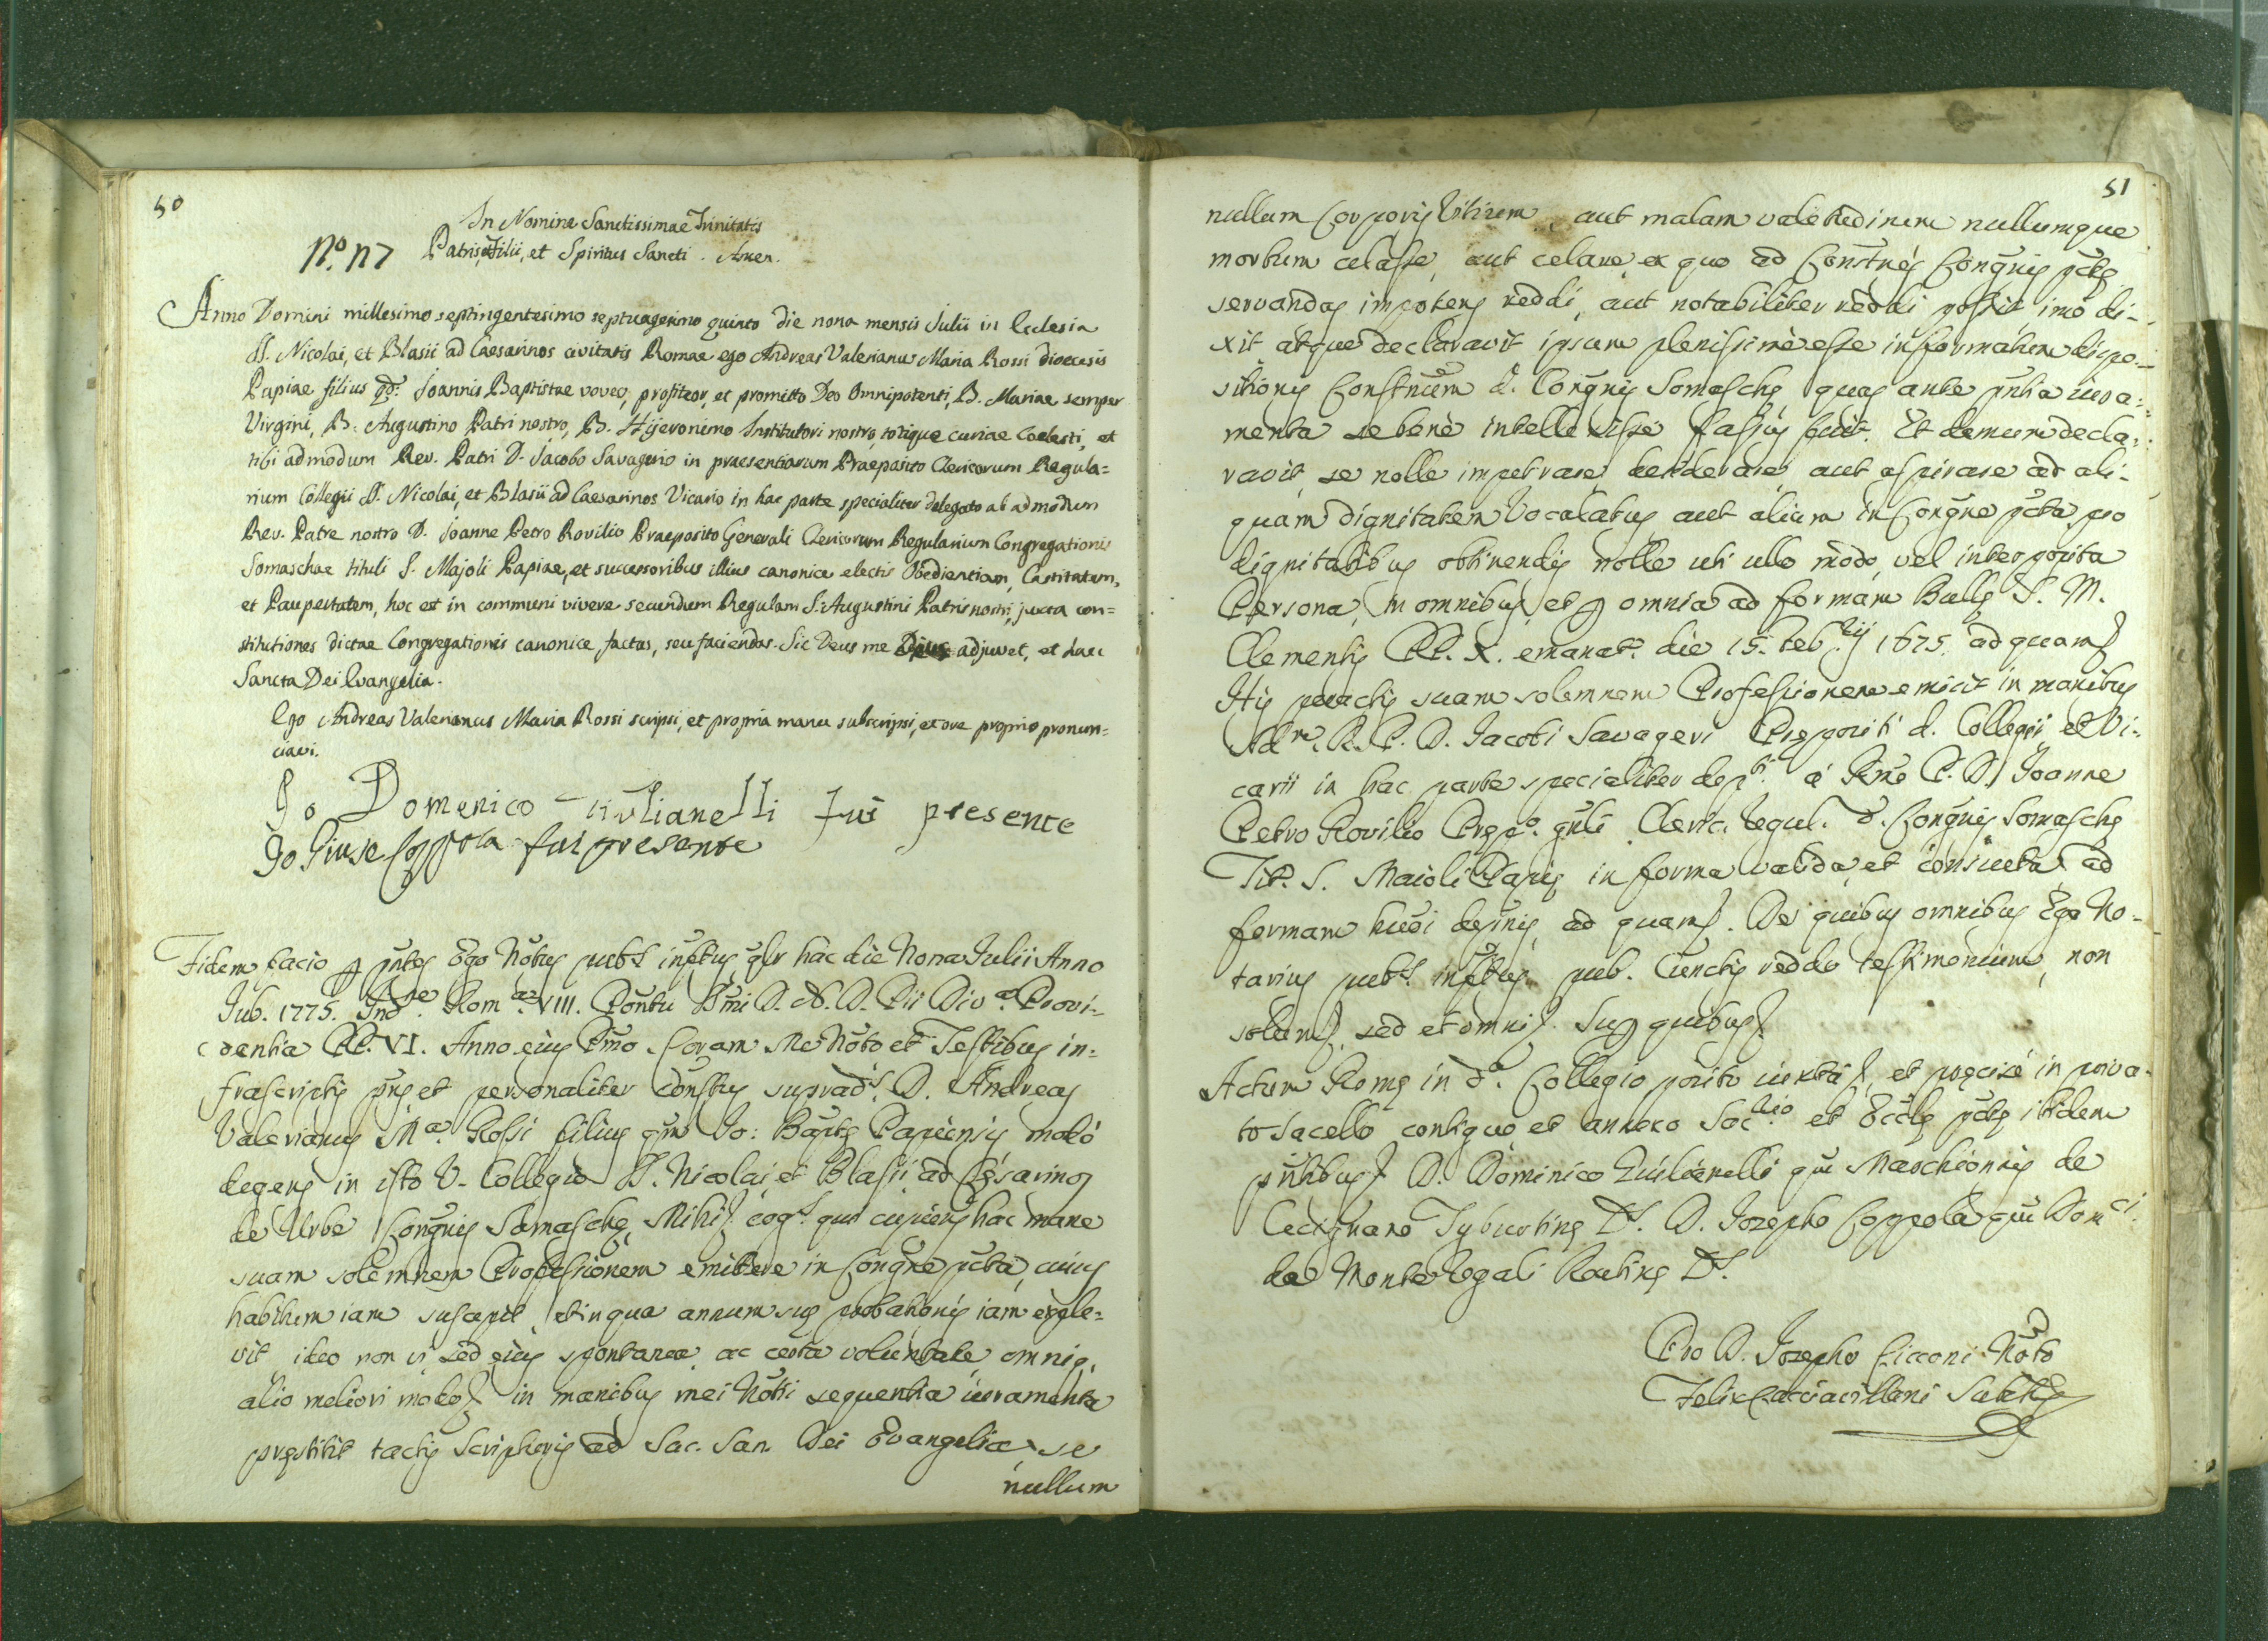 50
In Nomine Sanctissimae Trinitatis
No. 117 Patris, et Filii, et Spiritus Sancti. Amen.
Anno Domini millesimo septingentesimo septuagesimo quinto die nona mensis Julii in Ecclesia
SS. Nicolai, et Blasii ad Caesarinos civitatis Romae ego Andreas Valerianus Maria Rossi dioecesis
Papiae filius qd: Joannis Baptistae voveo, profiteor, et promitto Deo Omnipotenti, B. Mariae semper
Virgini, B. Augustino Patri nostro, B. Hijeronimo Institutori nostro, totique curiae Coelesti, et
tibi admodum Rev. Patri D. Jacobo Savageri in praesentiarum Praeposito Clericorum Regula=
rium Collegii SS. Nicolai, et Blasii ad Caesarinos Vicario in hac parte specialiter delegato ab admodum
Rev. Patre nostro D. Joanne Petro Rovilio Praeposito Generali Clericorum Regularium Congregationis
Somaschae tituli S. Majoli Papiae, et successoribus illius canonice electis Obedientiam, Castitatem,
et Paupertatem, hoc est in communi vivere secundum Regulam S. Augustini Patris nostri, juxta con=
stitutiones dictae Congregationis canonice factas, seu faciendas. Sic Deus me adjuvet, et haec
Sancta Dei Evangelia.
Ego Andreas Valerianus Maria Rossi scripsi, et propria manu subscripsi, et ore proprio pronun=
ciavi.
Io Domenico Giulianelli fui presente
Io Giuse Coppola fui presente
Fidem facio p pñtes Ego Notus pubs infstus qlr hac die Nona Julii Anno
Jub. 1775. Indne Romae VIII. Pontu Smi D. N. D. Pii Diva Provi-
dentia PP. VI. Anno eius Pmo Coram Me Noto et Testibus in=
frascriptis pñs et personaliter constus suprads D. Andreas
Valerianus Ma. Rossi filius qm Jo: Baptę Papiensis modo
degens in isto V. Collegio SS. Nicolai et Blasii ad Cęsarinos
de Urbe Congnis Somaschę Mihi cogs. qui cupiens hac mane
suam solemnem Professionem emittere in Congne pcta, cuius
habitum iam suscepit, et in qua annum suę probationis iam exple=
vit ideo non vi sed eius spontanea ac certa voluntate omniq.
alio meliori modo in manibus mei Notii sequentia iuramenta
pręstitit tactis scripturis ad Sac. San. Dei Evangelia se
nullum
51
nullum Corporis Vitium aut malam valetudinem nullumque
morbum celasse, aut celare ex quo ad Constnes Congnis pctę
servandas impotens reddi, aut notabiliter reddi possit imò di-
xit atque declaravit ipsum plenissimè esse informatum dispo-
sitionis Constnum d. Congnis Somaschę quas ante pntia iura=
menta se benè intellexisse fassus fuit. Et demum decla=
ravit se nolle impetrare, desiderare, aut aspirare ad ali-
quam dignitatem Vocalatus aut aliam in Congne pcta, pro
dignitatibus obtinendis nolle uti ullo modo, vel interposita
Persona, in omnibus, et p omnia ad formam Bullę S. M.
Clementis PP. X. emanat. die 15. Febrij 1675. ad quam
His peractis suam solemnem Professionem emisit in manibus
Adm. R. P. D. Jacobi Savageri Prępositi d. Collegii, et Vi=
carii in hac parte specialiter dept. à Rmo P. D. Joanne
Petro Rovilio Pręp. gnli Cleric. Regul. d. Congnis Somaschę
Tit. S. Maioli Papię in forma valida, et consueta ad
formam ad quam. De quibus omnibus Ego No-
tarius pubs. infstus pub. Cunctis reddo testimonium, non
solum, sed et omni. Sup quibus
Actum Romę in do. Collegio posito iuxta et pręcisè in priva-
to sacello contiguo et annexo et Eccle pctę ibidem
pntibus D. Dominico Giulianelli qm Marchionis de
Tyburtinę Ds. D. Josepho Coppola qm Domci.
de Monte Regali Ds.
Pro D. Josepho Cicconi Noto
Felix Cacciavillani Substs